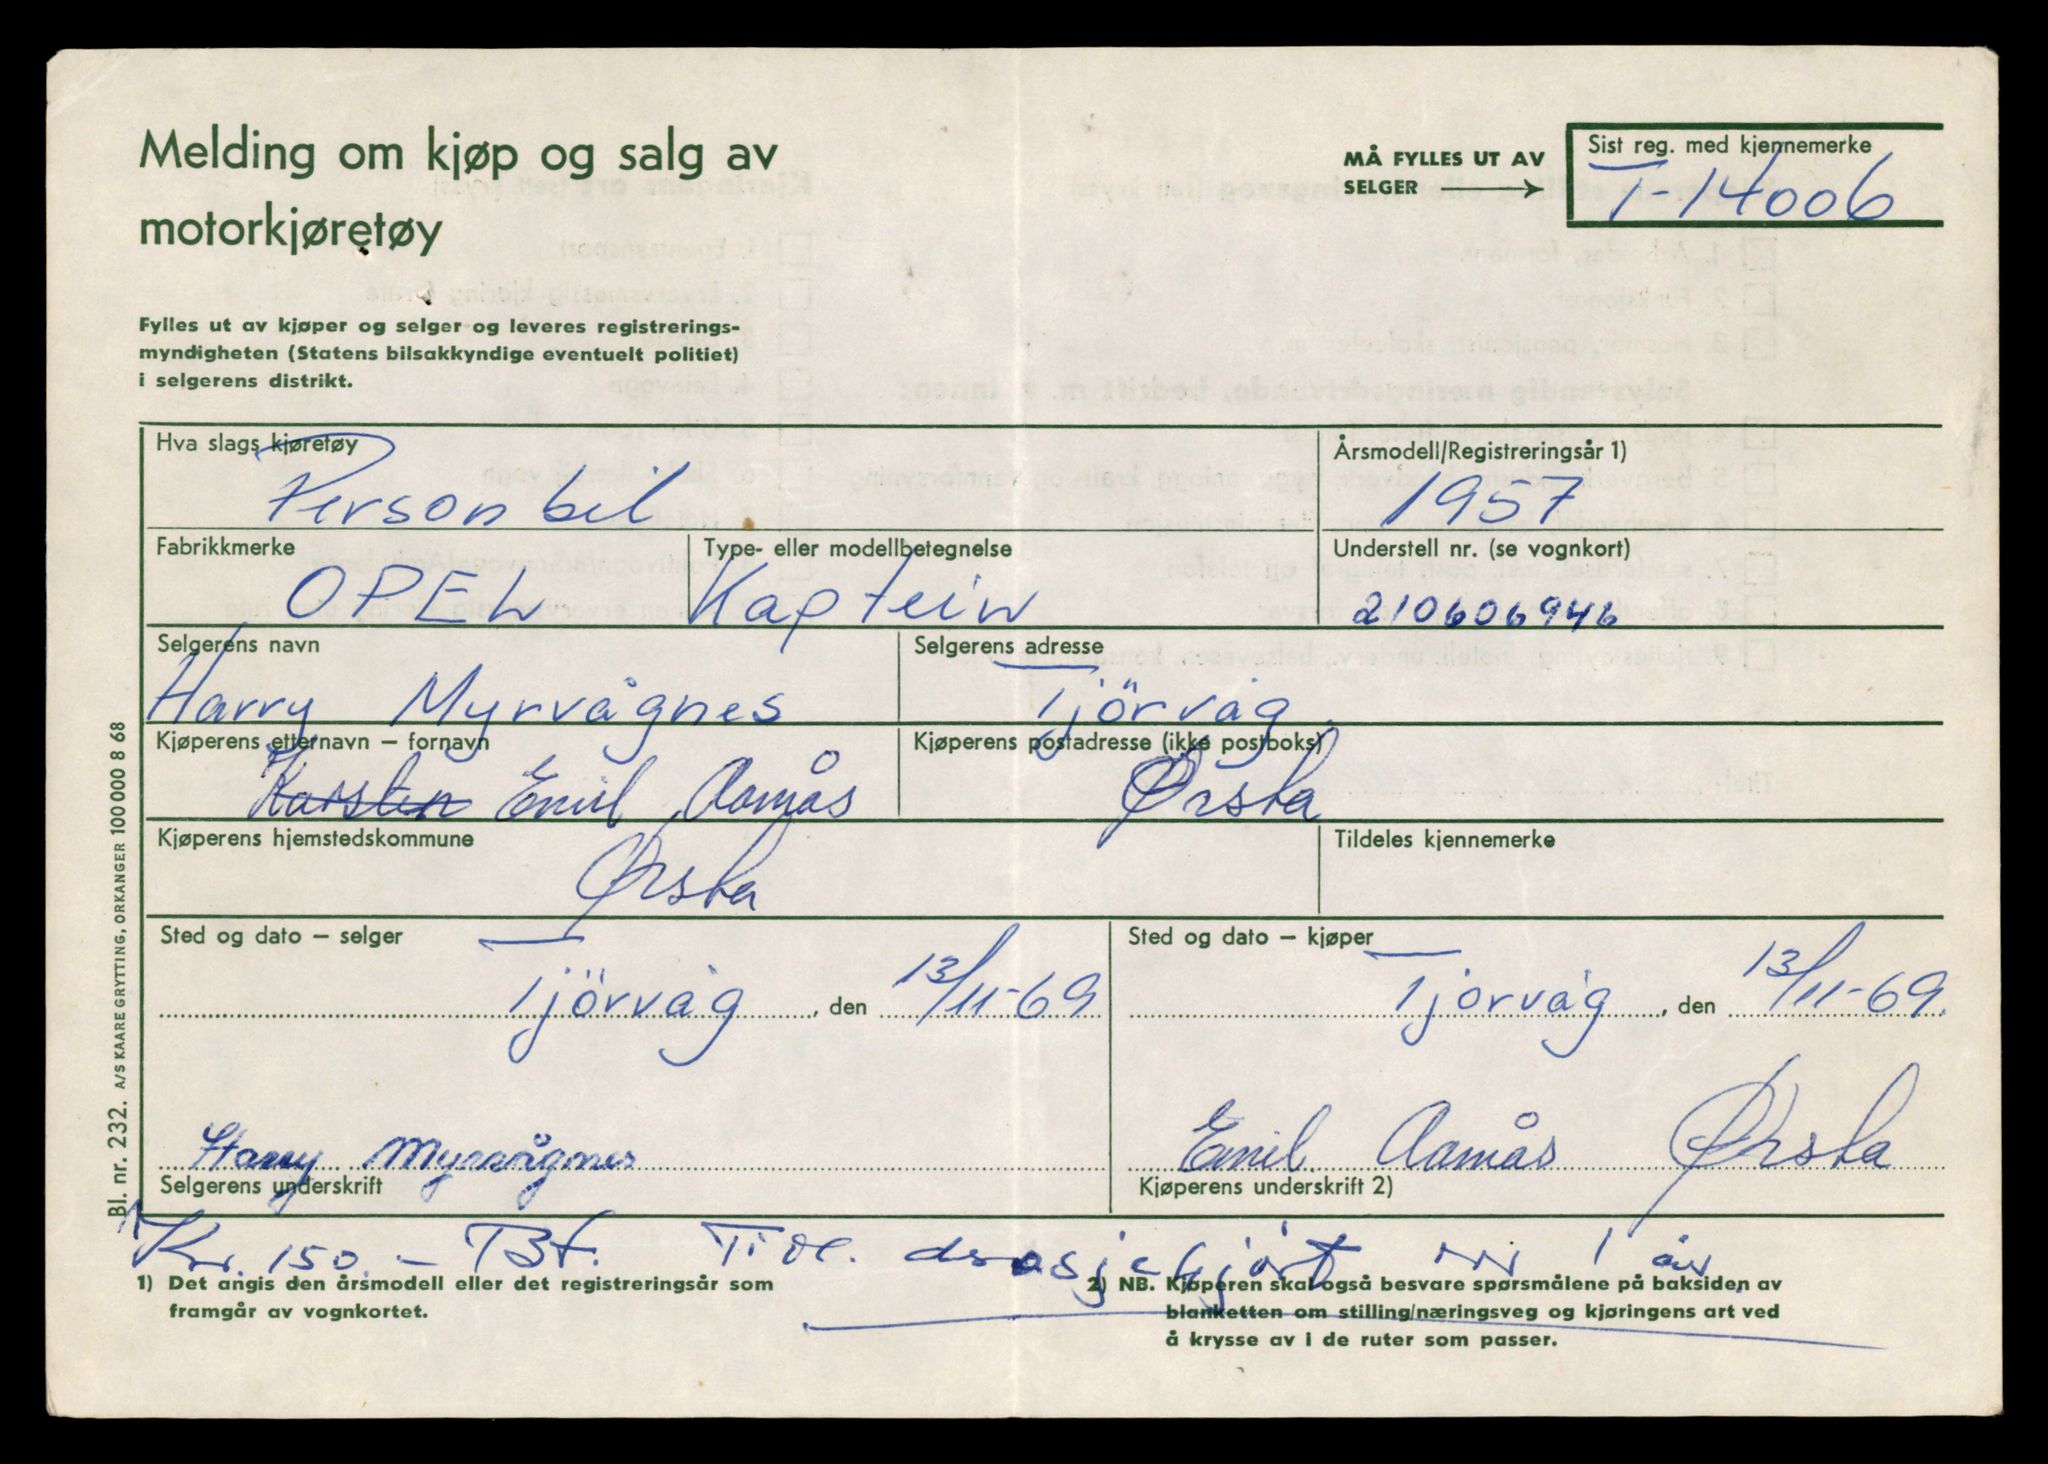 Melding om kjøp og salg av
motorkjøretøy
Fylles ut av kjøper og selger og leveres registrerings-
myndigheten (Statens bilsakkyndige eventuelt politiet)
i selgerens distrikt.
MÅ FYLLES UT AV
SELGER
Sist reg. med kjennemerke
T-14006
Hva slags kjøretøy
Personbil
Årsmodell/Registreringsår 1)
1957
Fabrikkmerke
OPEL
Type- eller modellbetegnelse
Kaptein
Understell nr. (se vognkort)
210606946
Selgerens navn
Harry Myrvågnes
Selgerens adresse
Tjörvåg
Kjøperens etternavn – fornavn
Karsten Emil Aamås
Kjøperens postadresse (ikke postboks)
Ørsta
Kjøperens hjemstedskommune
Ørsta
Tildeles kjennemerke
Sted og dato – selger
Tjörvåg, den 13/11-69
Sted og dato – kjøper
Tjorvåg, den 13/11-69.
Harry Myrvågnes
Selgerens underskrift
Emil Aamås Ørsta
Kjøperens underskrift 2)
Kr. 150.- Bf. drosjekjørt 1 år.
1) Det angis den årsmodell eller det registreringsår som
framgår av vognkortet.
2) NB. Kjøperen skal også besvare spørsmålene på baksiden av
blanketten om stilling/næringsveg og kjøringens art ved
å krysse av i de ruter som passer.
Bl. nr. 232. A/S KAARE GRYTTING, ORKANGER 100 000 8 68